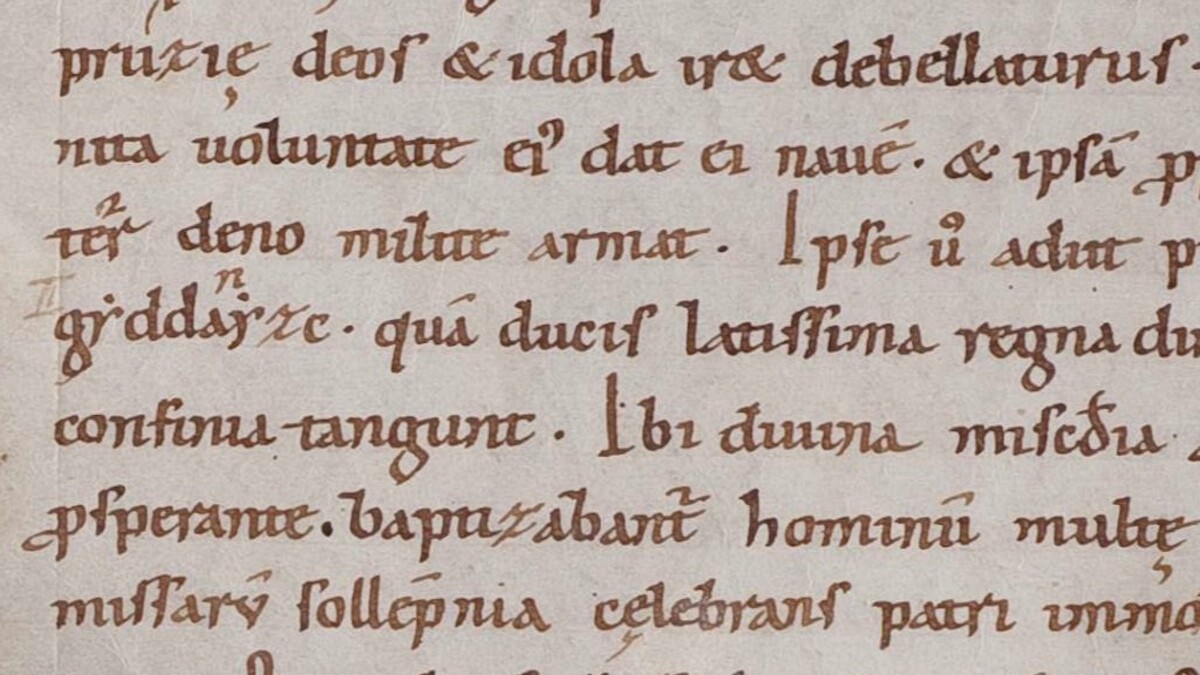 pruzię deos & idola iræ debellaturus ·
nita uoluntate ei᾽ dat ei nauē. & ipsā p
tēr deno milite armat. Ipse u̾ adiit p
gẏddaẏzc. quā ducis latissima regna
confinia tangunt. Ibi diuina misc̄dia
ꝓsperante. baptizabant᷑ hominū multę
missarū sollēpnia cęlebrans patri